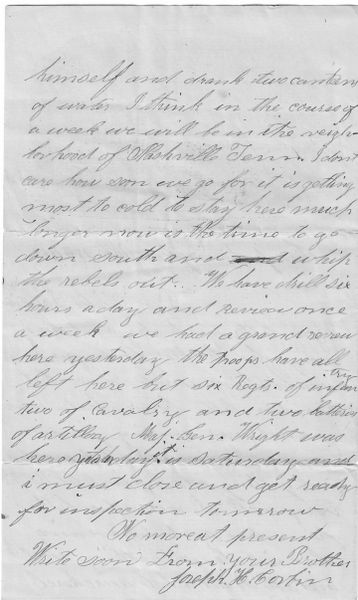 himself and drank two canteens
of water I think in the course of
a week we will be in the neigh-
borhood of Nashville Tenn. I dont
care how son we go for it is getting
most to cold to stay here much
longer now is the time to go
down south and whip
the rebels out. We have drill six
hours a day and review once
a week we had a grand review
here yesterday the troops have all
left here but six Regts. of infantry
two of cavalry and two batteries
of artillery Maj. Gen. Wright was
here yesterday it is saturday and
i must close and get ready
for inspection tomorrow
No more at present
Write soon From your Brother
Joseph H. Corbin